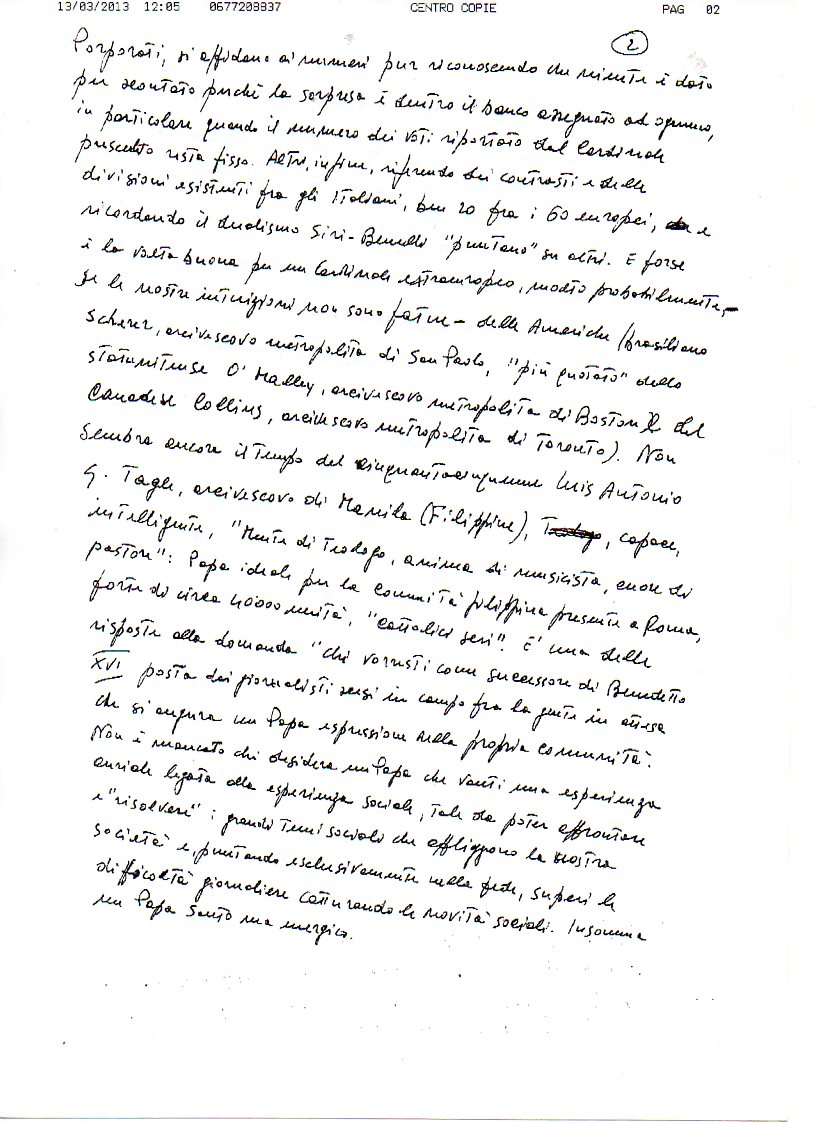 13/03/2013 12:05 0677208837 CENTRO COPIE PAG 02
2
Porporati, si affidano ai numeri pur riconoscendo che niente è dato
per scontato perché la sorpresa è dentro il banco assegnato ad ognuno,
in particolare quando il numero dei voti riportato dal Cardinale
prescelto resta fisso. Altri, infine, riferendo dei contrasti e delle
divisioni esistenti fra gli Italiani, ben 20 fra i 60 europei, e
ricordando il dualismo Siri-Benelli "puntano" su altri. E forse
è la volta buona per un Cardinale extraeuropeo, molto probabilmente -
se le nostre intuizioni non sono fatue - delle Americhe (brasiliano
Scherer, arcivescovo metropolita di San Paolo, "più quotato" dello
statunitense O' Malley, arcivescovo metropolita di Boston e del
Canadese Collins, arcivescovo metropolita di Toronto). Non
sembra ancora il tempo del cinquantacinquenne Luis Antonio
G. Tagle, arcivescovo di Manila (Filippine), capace,
intelligente, "Mente di Teologo, anima di musicista, cuore di
pastore": Papa ideale per la comunità filippina presente a Roma,
forte di circa 40000 unità, "cattolici seri". E' una delle
risposte alla domanda "chi vorresti come successore di Benedetto
XVI posta dai giornalisti scesi in campo fra la gente in attesa
che si augura un Papa espressione della propria comunità.
Non è mancato chi desidera un Papa che vanti una esperienza
curiale legata alla esperienza sociale, tale da poter affrontare
e "risolvere" i grandi temi sociali che affliggono la nostra
società e, puntando esclusivamente nella fede, superi le
difficoltà giornaliere catturando le novità sociali. Insomma
un Papa Santo ma energico.